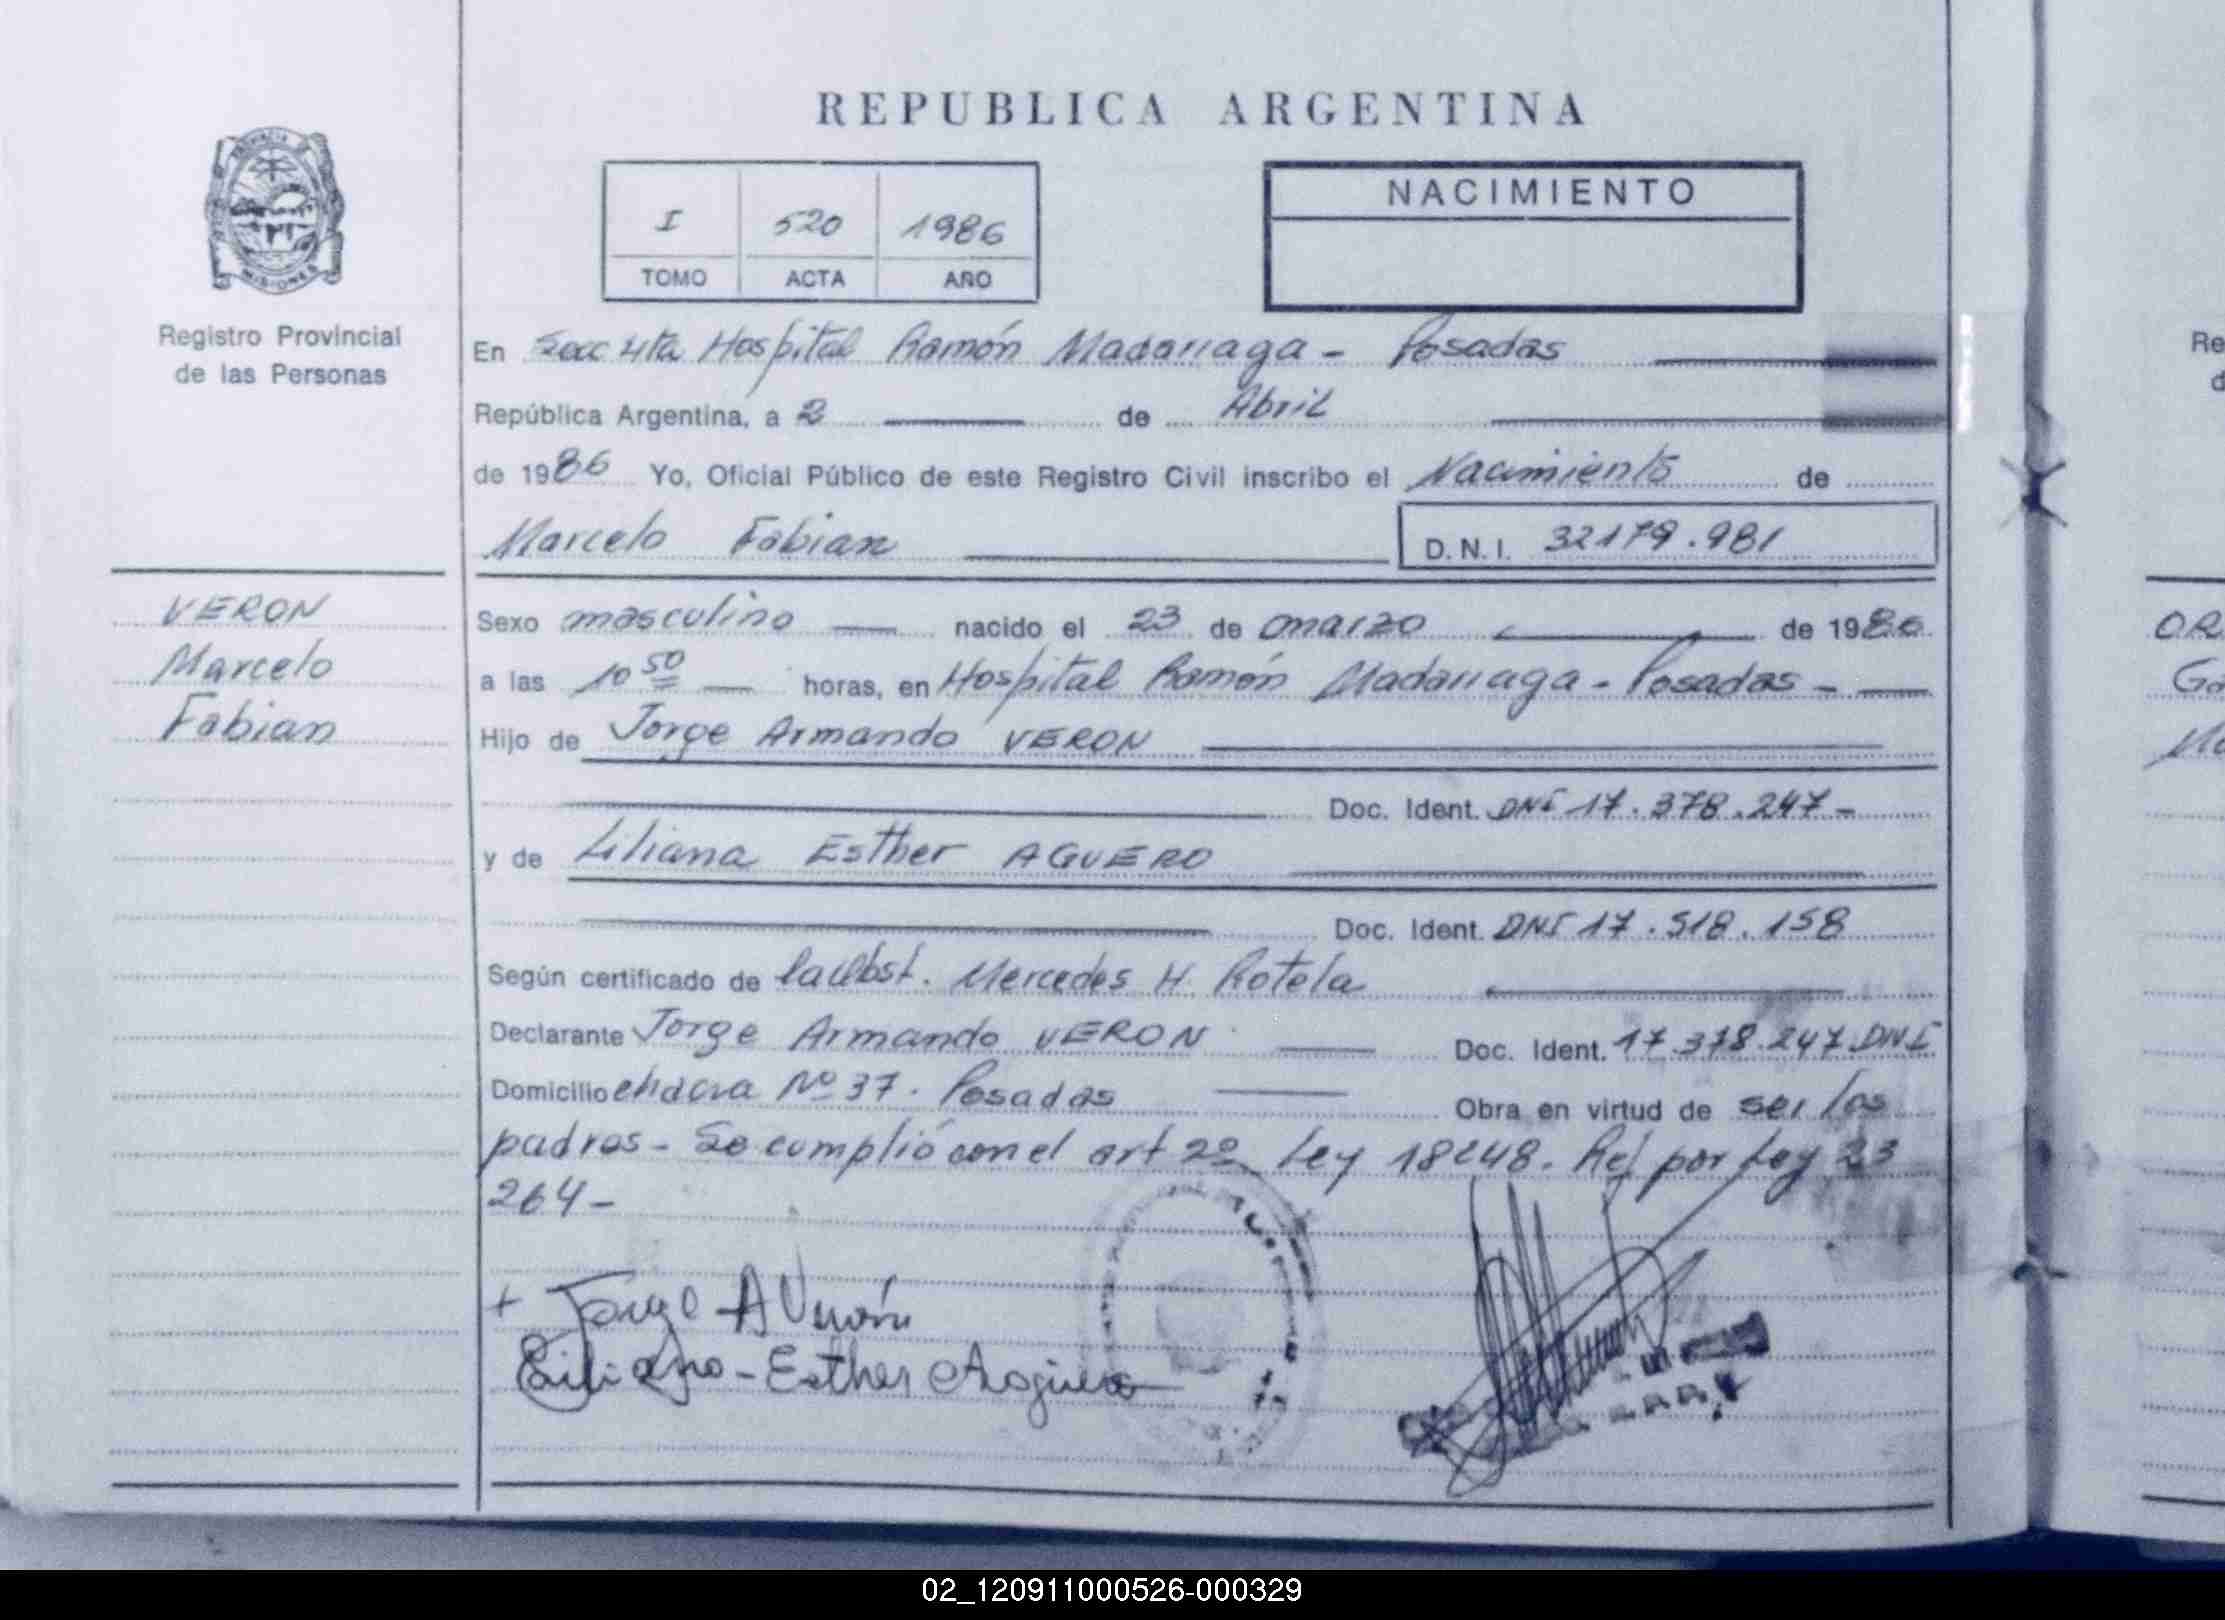 REPUBLICA ARGENTINA
PROVINCIA DE
MISIONES
Registro Provincial
de las Personas
I 520 1986
TOMO ACTA AÑO
NACIMIENTO
En Secc 4ta Hospital Ramón Madariaga - Posadas
República Argentina, a 2 de Abril
de 1986 Yo, Oficial Público de este Registro Civil inscribo el Nacimiento de
Marcelo Fabian D.N.I. 32179.981
VERON
Marcelo
Fabian
Sexo masculino nacido el 23 de marzo de 1986
a las 10 50 horas, en Hospital Ramón Madariaga - Posadas -
Hijo de Jorge Armando VERON
Doc. Ident. DNI 17.378.247-
y de Liliana Esther AGUERO
Doc. Ident. DNI 17.518.158
Según certificado de la Obst. Mercedes H. Rotela
Declarante Jorge Armando VERON Doc. Ident. 17.378.247 DNI
Domicilio Nº 37. Posadas Obra en virtud de ser los
padres - Se cumplió con el art 2º Ley 18248. Ref por Ley 23
264-
+ Jorge A Verón
Liliana - Esther Aguero
Re
d
OR
Ga
Ma
02_120911000526-000329